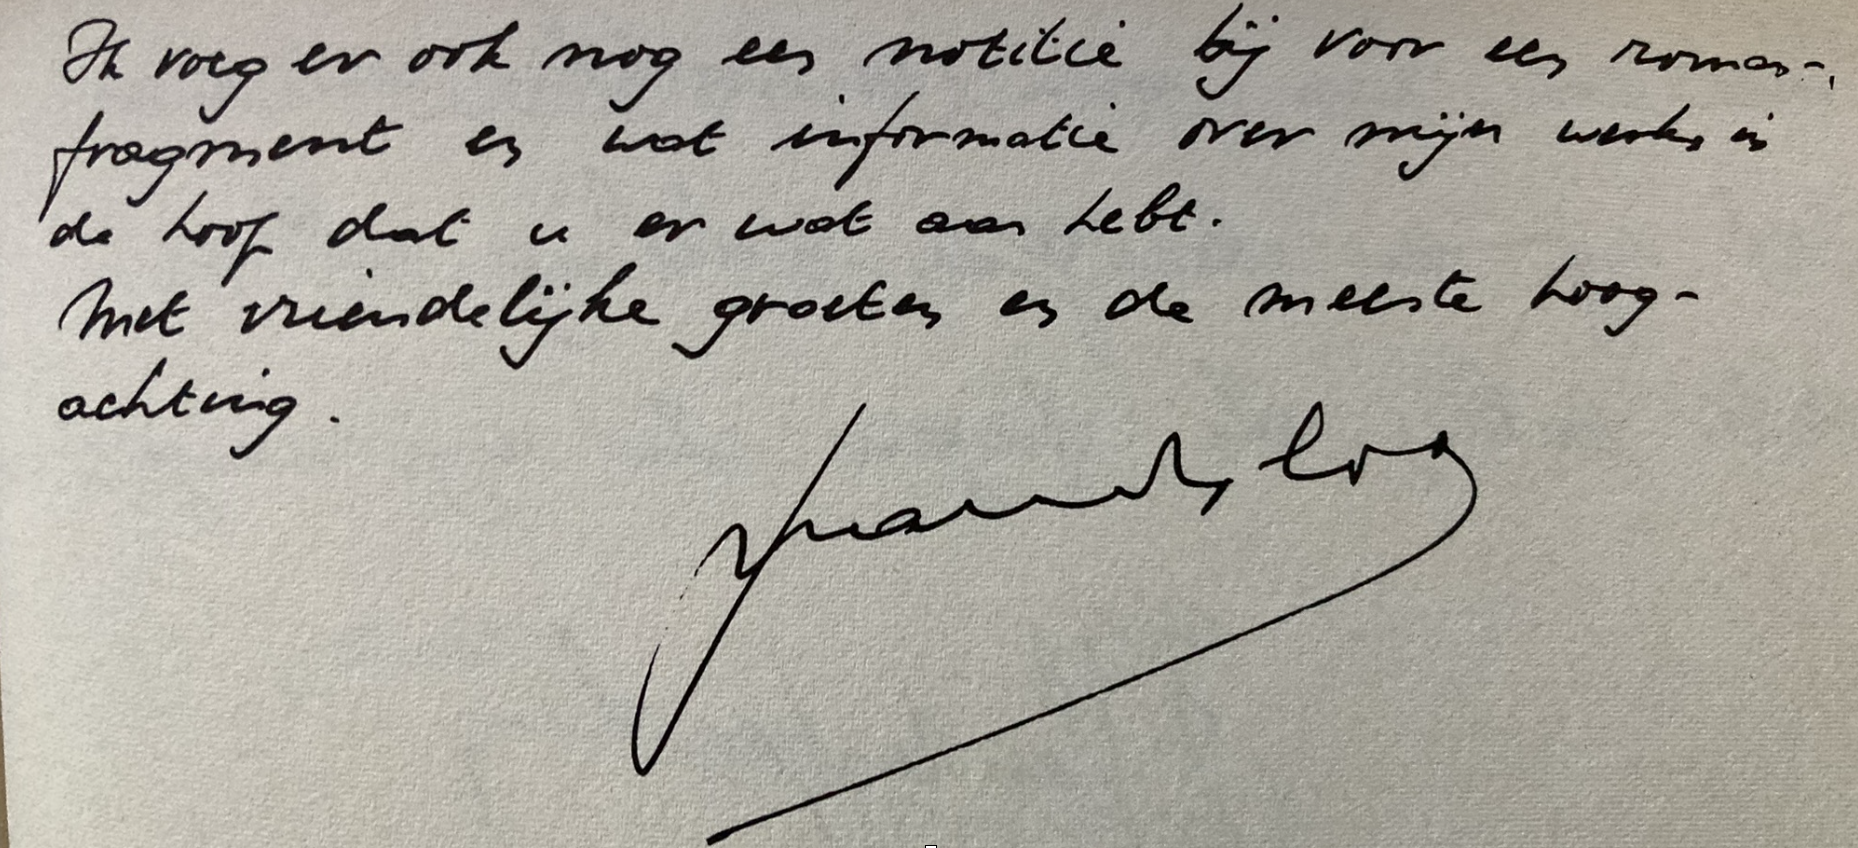 Ik voeg er ook nog een notitie bij voor een roman-
fragment en wat informatie over mijn werk, in
de hoop dat u er wat aan hebt.
Met vriendelijke groeten en de meeste hoog-
achting.